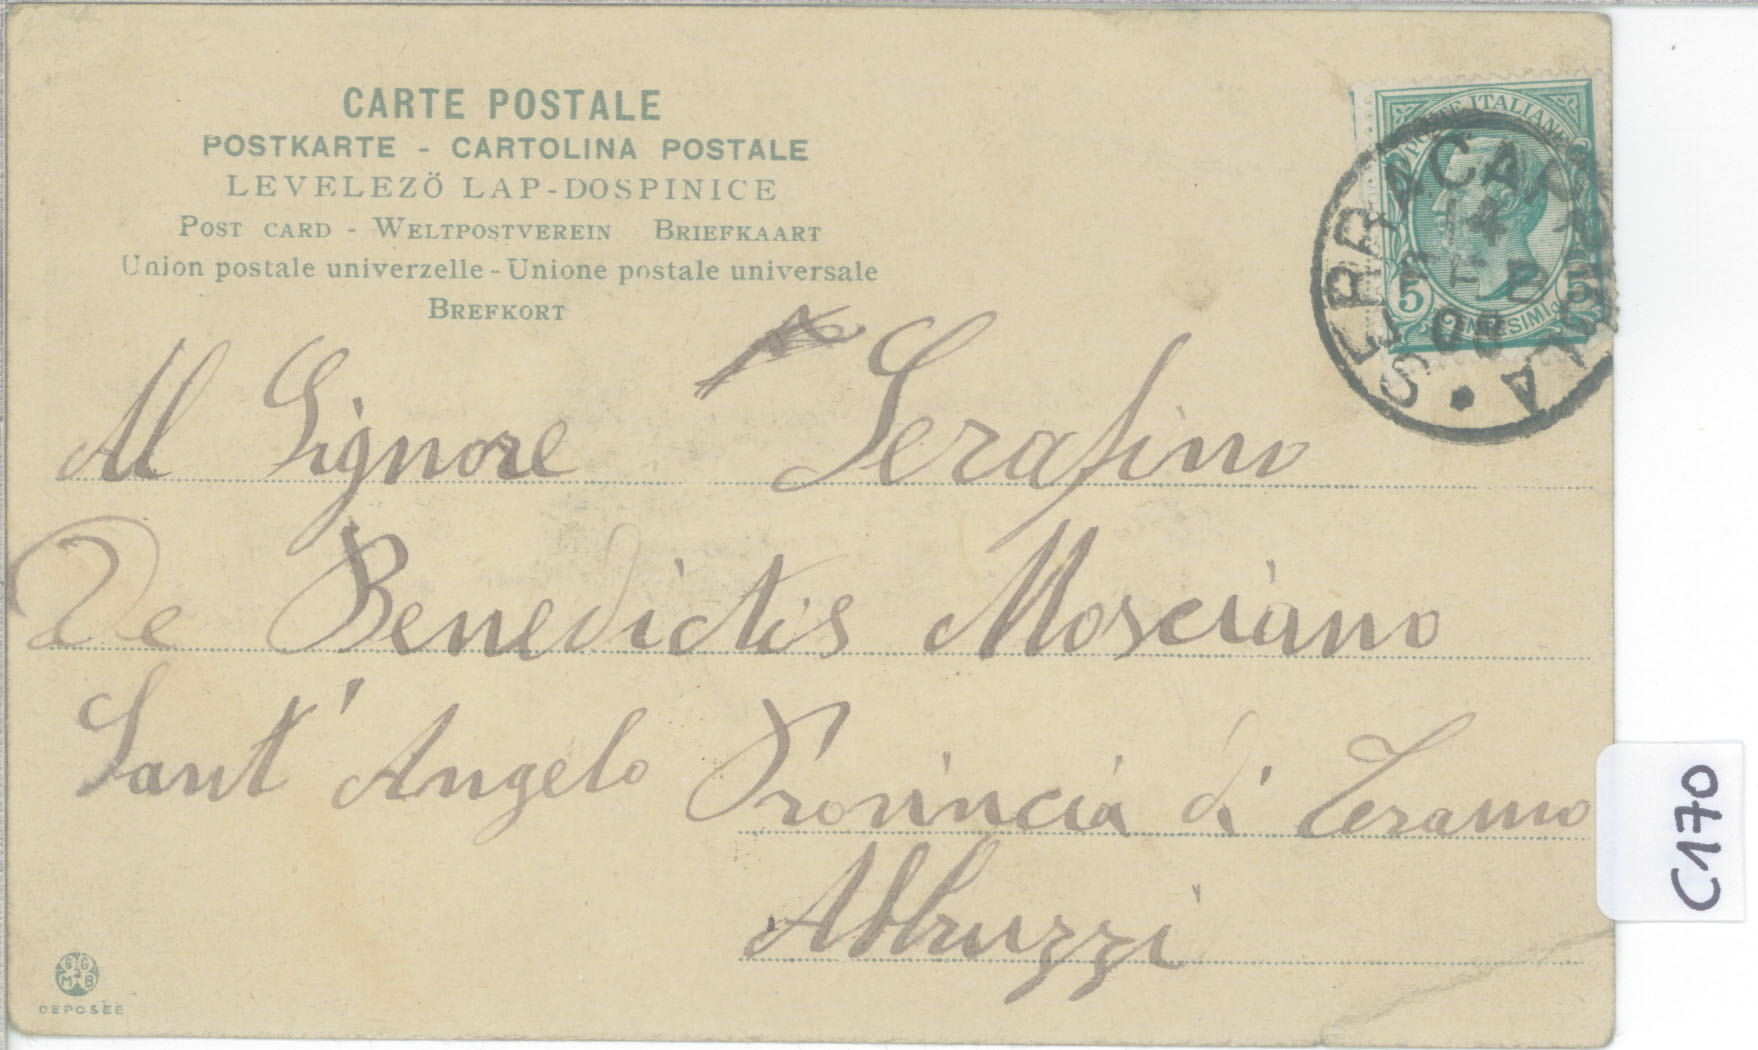 CARTE POSTALE
POSTKARTE - CARTOLINA POSTALE
LEVELEZÖ LAP-DOSPINICE
POST CARD - WELTPOSTVEREIN BRIEFKAART
Union postale univerzelle - Unione postale universale
BREFKORT
POSTE ITALIANE
5 CENTESIMI 5
SERRACAPRIOLA
14 FEB 08
Al Signore Serafino
De Benedictis Mosciano
Sant' Angelo Provincia di Teramo
Abbruzzi
C170
GG
MB
DEPOSEE